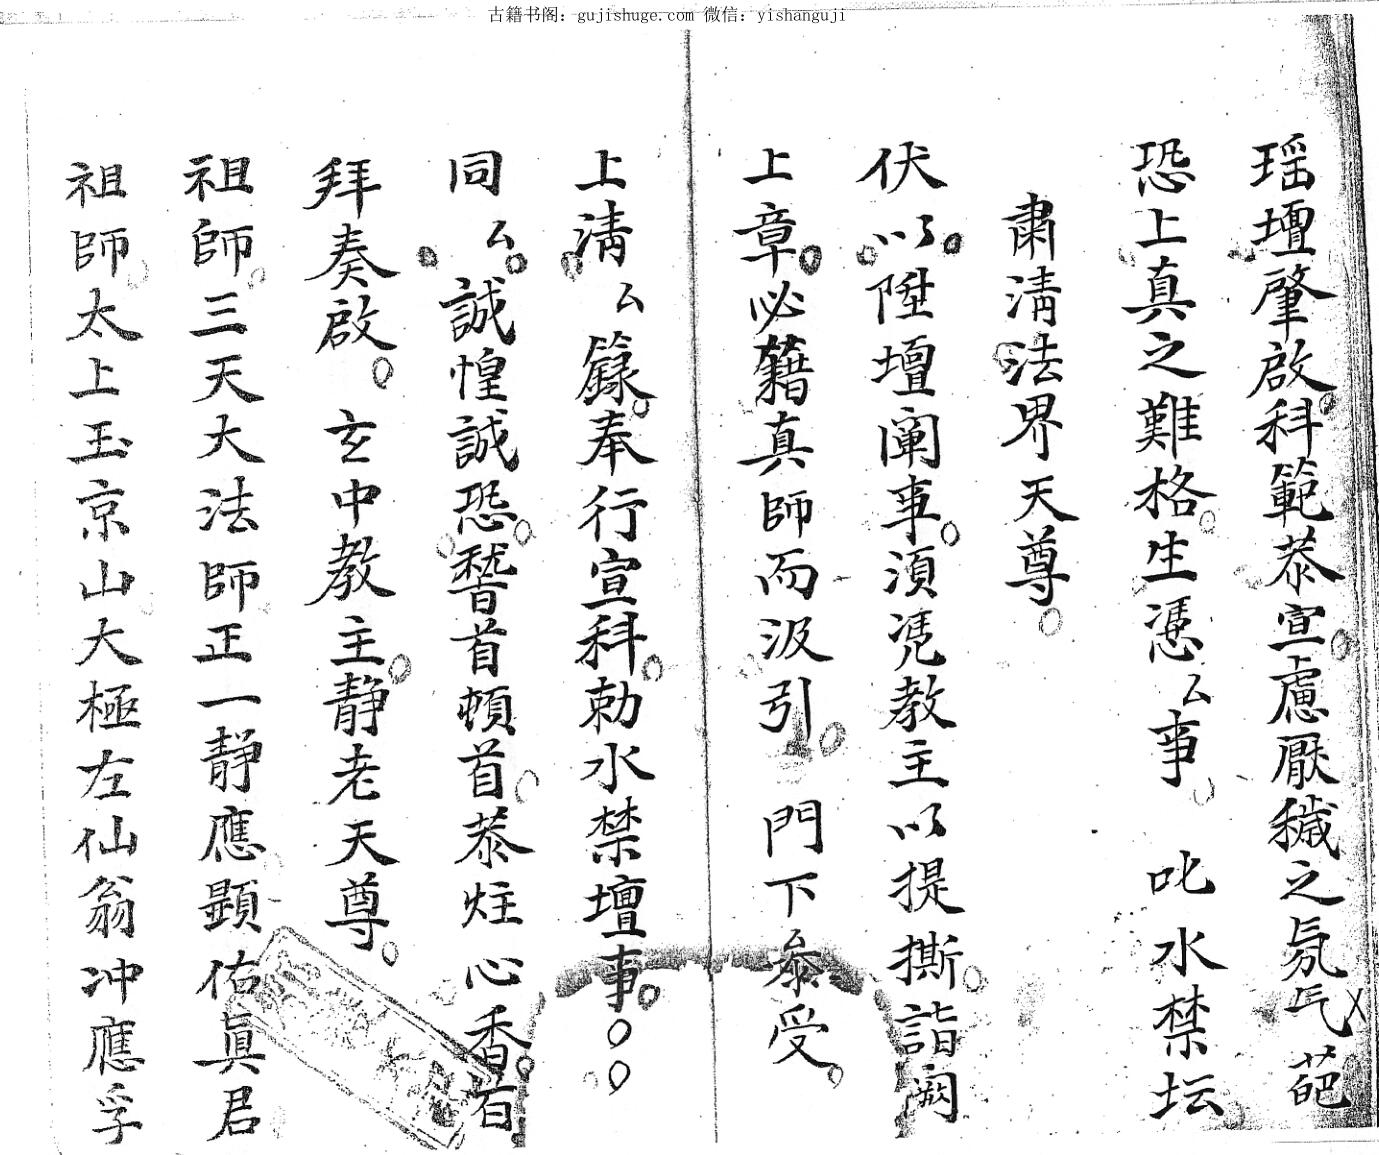 古籍书阁：gujishuge.com 微信：yishanguji
瑶壇肇啟科範恭宣慮厭穢之氛气葩
恐上真之難格生憑厶事 叱水禁坛
肅清法界天尊
伏以陞壇闡事湏凴教主以提撕詣闕
上章必籍真師而汲引 門下叅受
上清厶籙奉行宣科勅水禁壇事
同厶誠惶誠恐稽首頓首恭炷心香百
拜奏啟 玄中教主静老天尊
祖師三天大法師正一静應顯佑真君
祖師太上玉京山大極左仙翁冲應孚